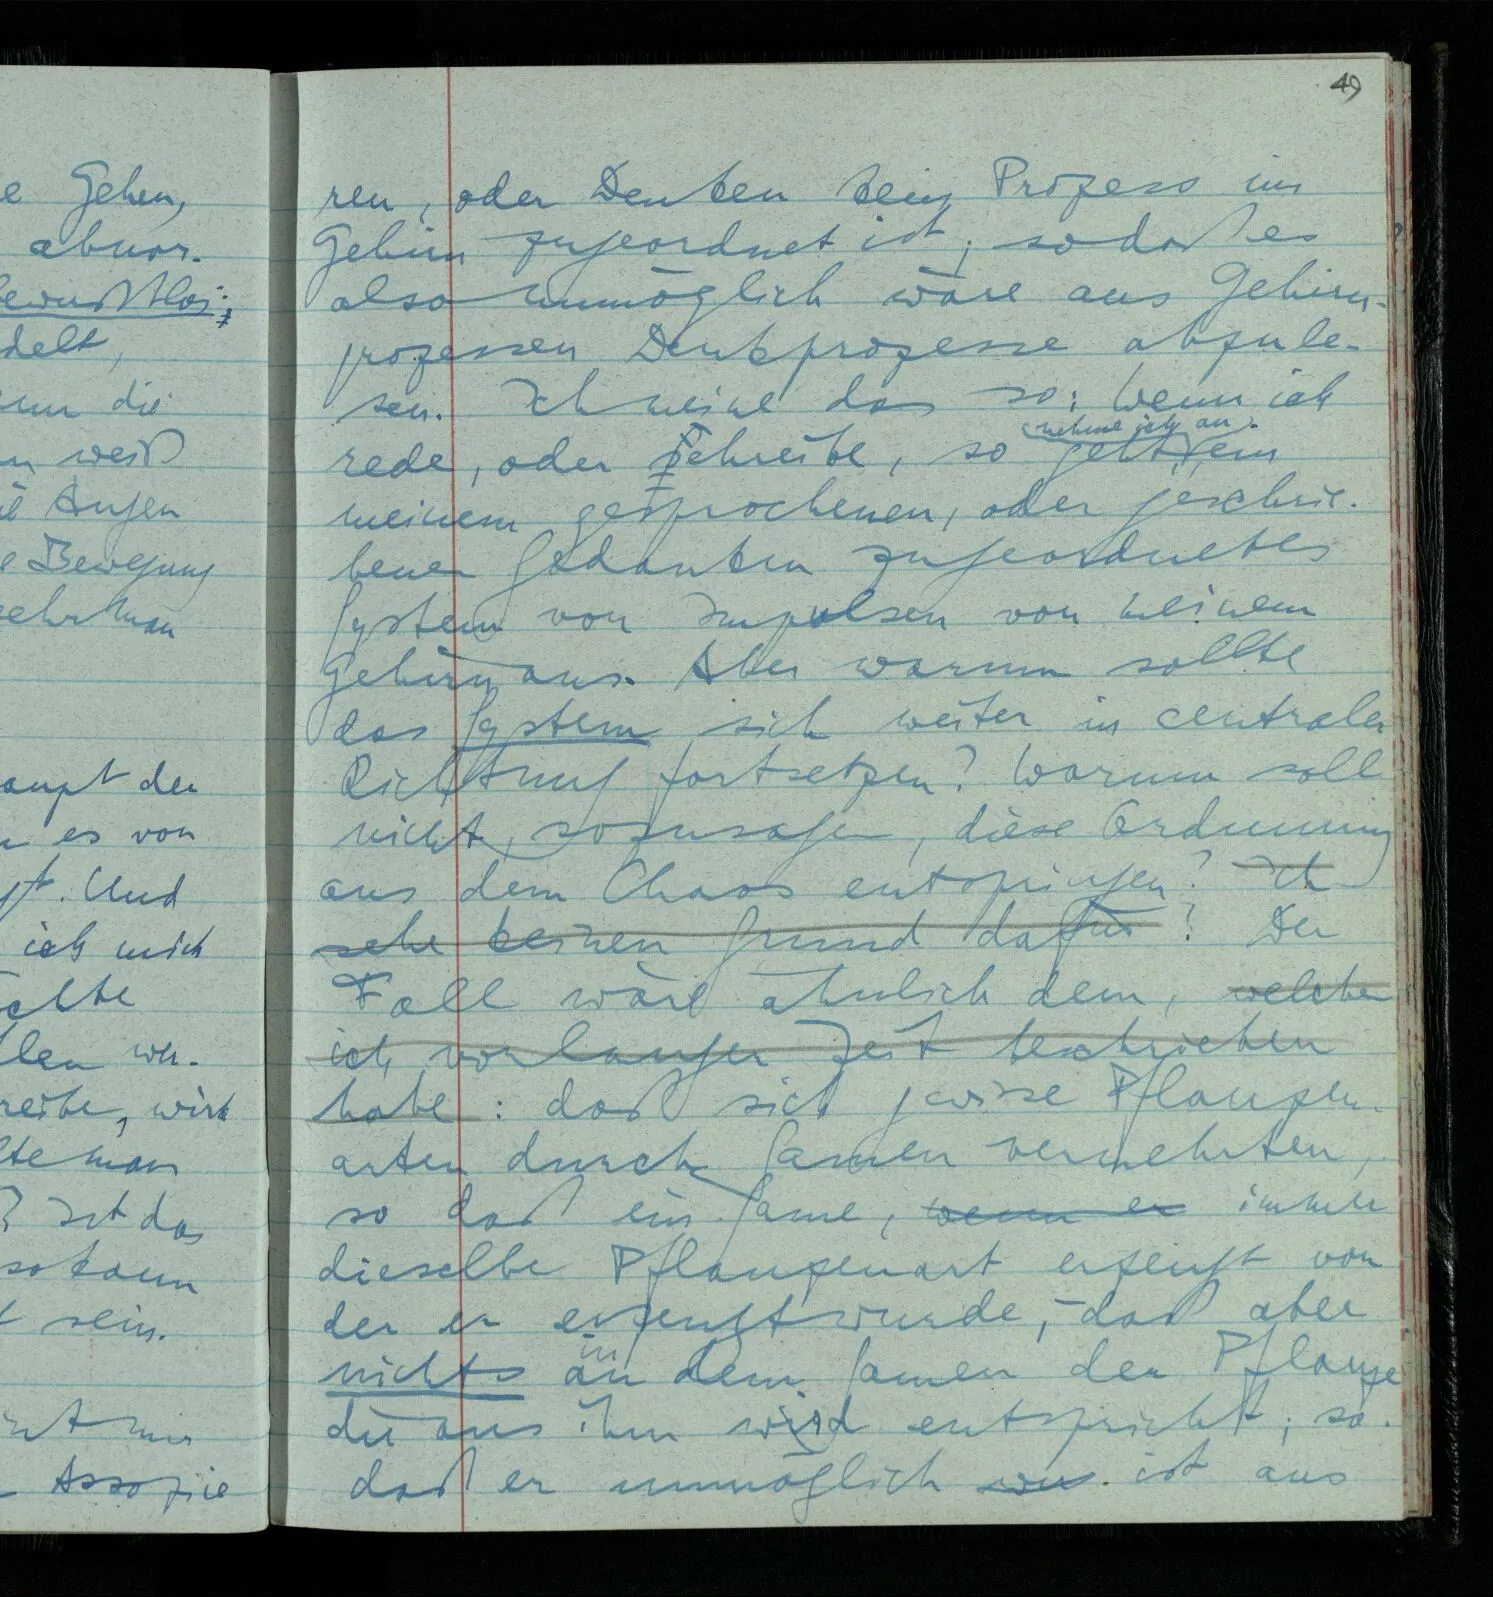 e Gehen,
abnor-
bewußtlos;
delt,
nn die
n weiß
ie Augen
e Bewegung
sehr man
aupt der
n es von
gt. Und
ich mich
llen wer-
reibe, wird
lte man
? Ist das
so kann
t sein.
Assozie
49
ren, oder Denken kein Prozess im
Gehirn zugeordnet ist, sodaß es
also unmöglich wäre aus Gehirn-
prozessen Denkprozesse abzule-
sen. Ich meine das so: Wenn ich
(nehme ich an)
rede, oder schreibe, so geht ein
meinem gesprochenen, oder geschrie-
benen Gedanken zugeordnetes
System von Impulsen von meinem
Gehirn aus. Aber warum sollte
das System sich weiter in centraler
Richtung fortsetzen? Warum soll
nicht, sozusagen, diese Ordnung
aus dem Chaos entspringen? Ich
sehe keinen Grund dafür? Der
Fall wäre ähnlich dem, welchen
ich vor langer Zeit beschrieben
habe: daß sich gewisse Pflanzen-
arten durch Samen vermehrten,
so daß ein Same, wenn er immer
dieselbe Pflanzenart erzeugt von
der er erzeugt wurde, – daß aber
in
nichts an dem Samen der Pflanze
die aus ihm wird entspricht; so-
daß er unmöglich ist aus